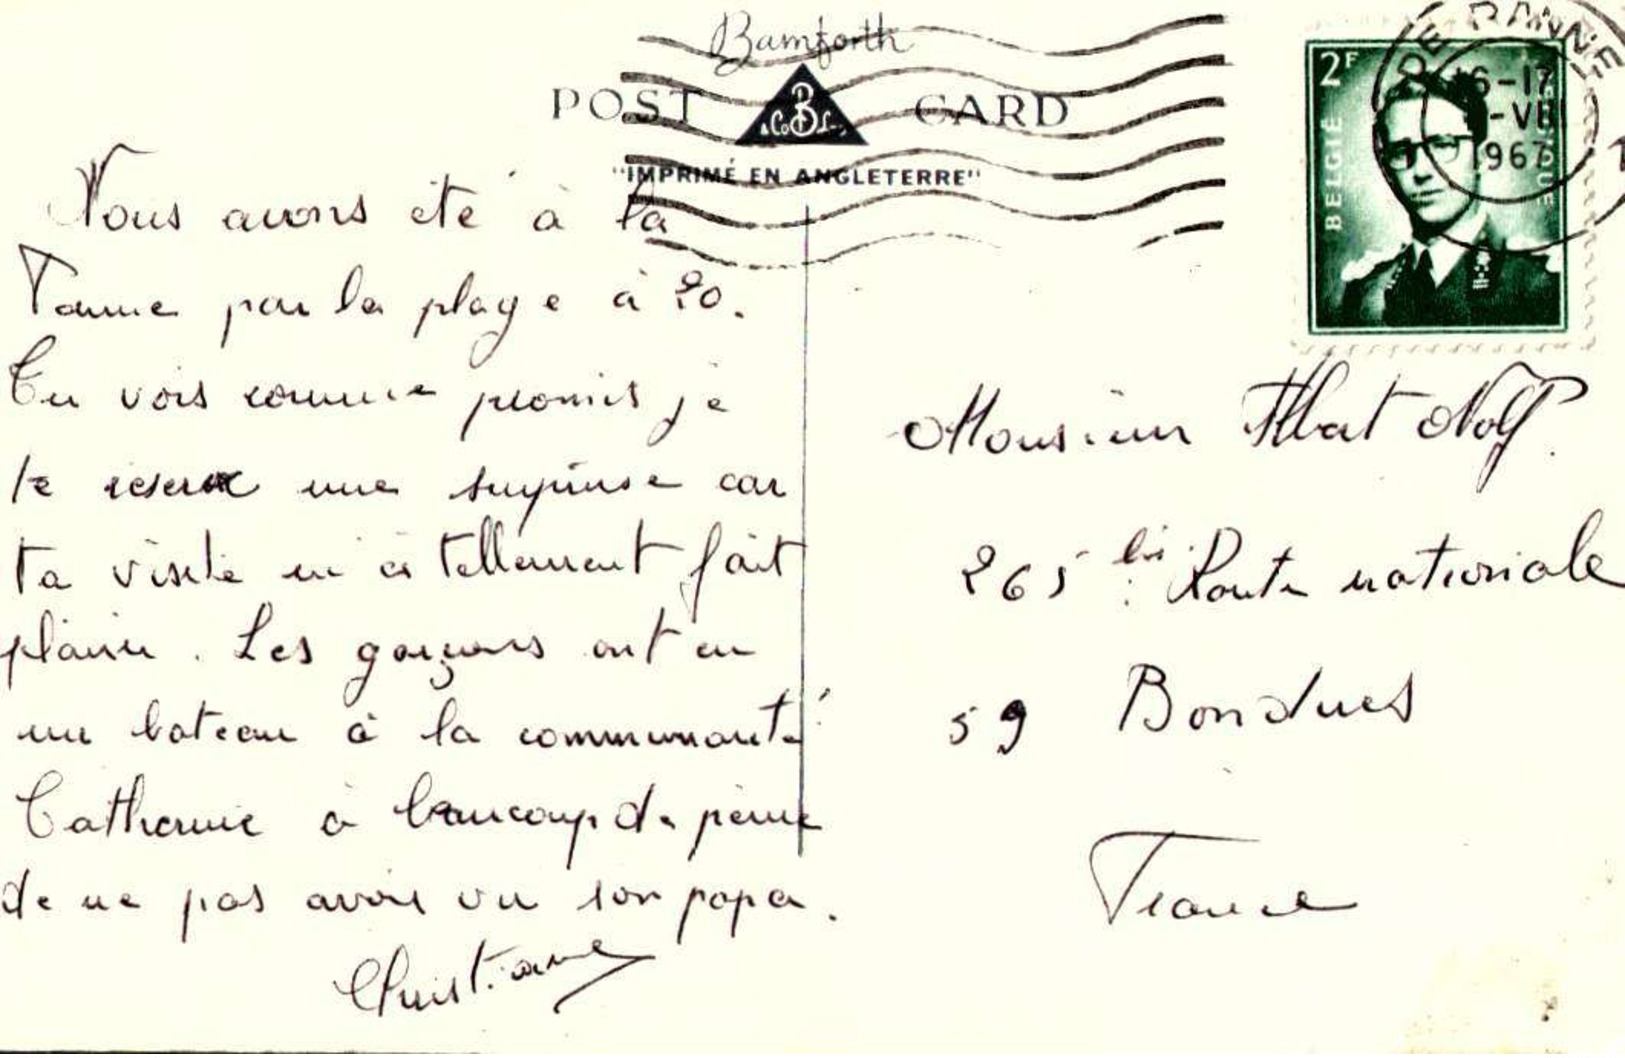 Bamforth
POST CARD
& Co B Ld.
"IMPRIMÉ EN ANGLETERRE"
2F
BELGIË
DE PANNE
16-17
-VII
1967
Nous avons été à la
Panne par la plage à 20.
Tu vois comme promis je
te réserve une surprise car
ta visite m'as tellement fait
plaisir. Les garçons ont eu
un bateau à la communauté
Catherine à beaucoup de peine
de ne pas avoir vu son papa.
Christiane
Monsieur Albert Nolf
265 bis Route nationale
59 Bondues
France